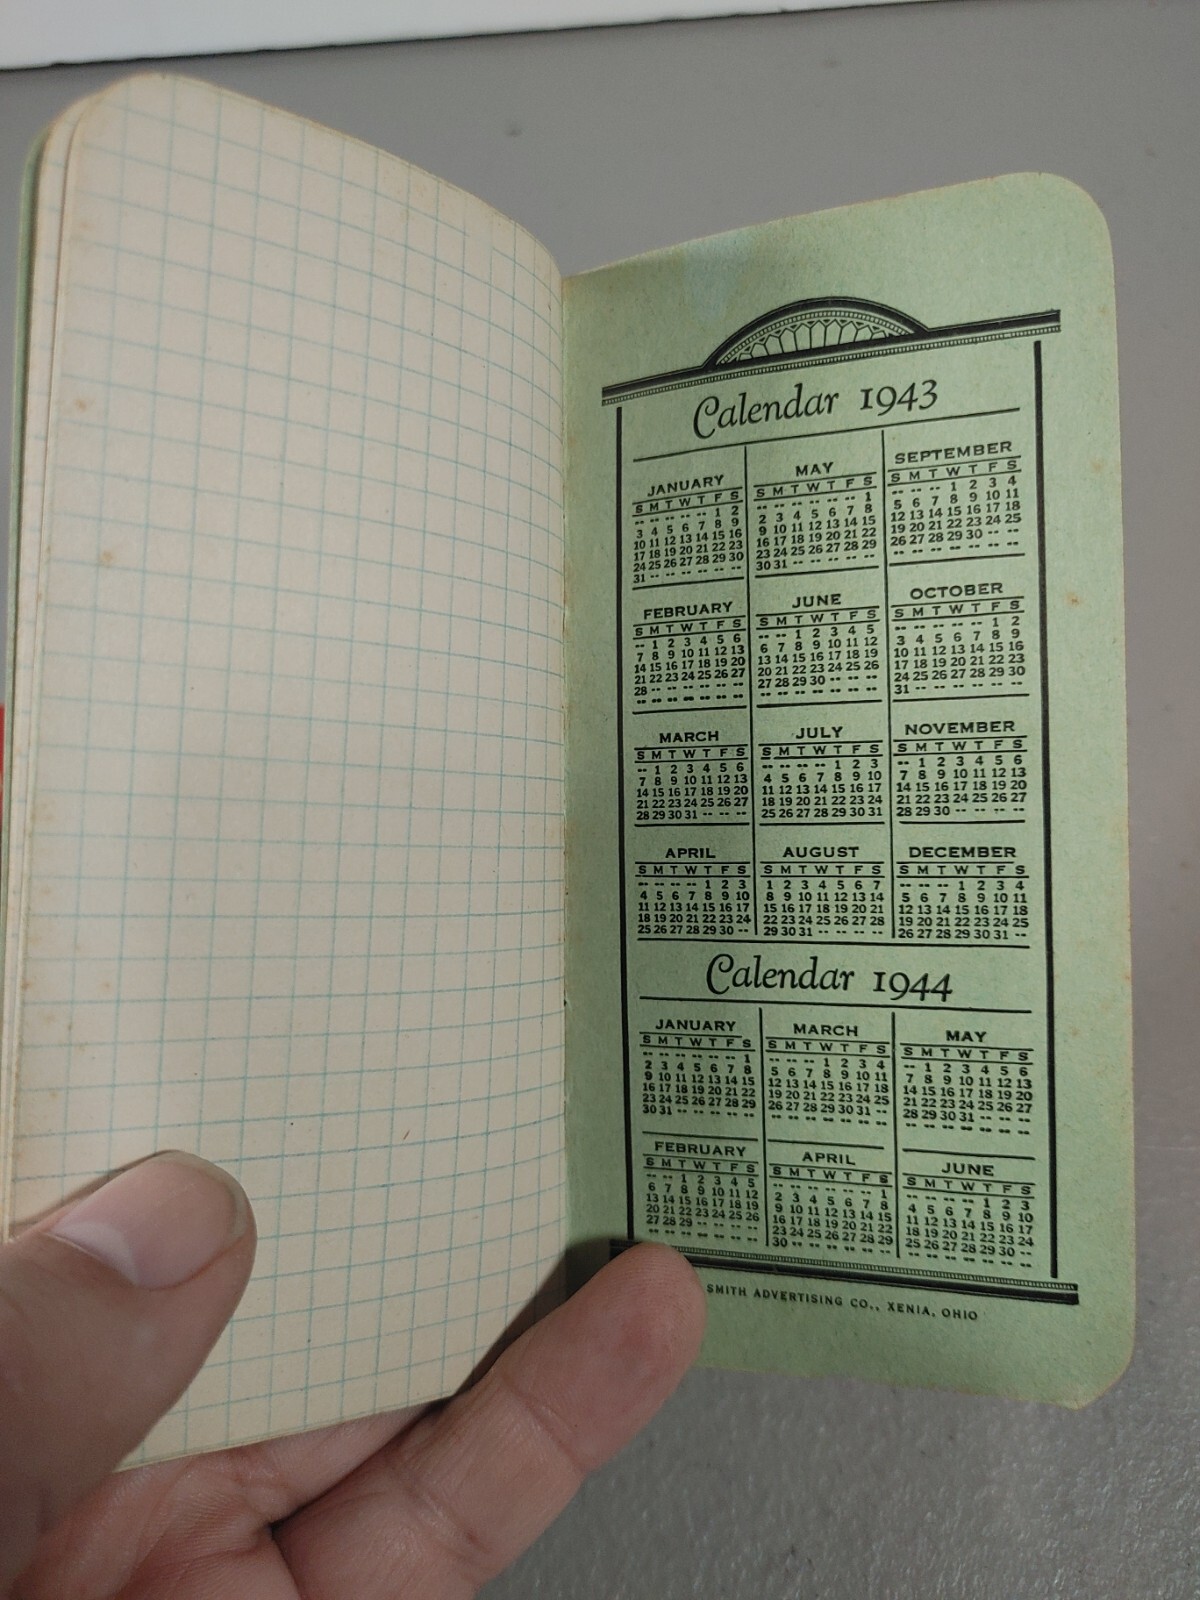 Calendar 1943
JANUARY
S M T W T F S
-- -- -- -- -- 1 2
3 4 5 6 7 8 9
10 11 12 13 14 15 16
17 18 19 20 21 22 23
24 25 26 27 28 29 30
31 -- -- -- -- -- --
FEBRUARY
S M T W T F S
-- 1 2 3 4 5 6
7 8 9 10 11 12 13
14 15 16 17 18 19 20
21 22 23 24 25 26 27
28 -- -- -- -- -- --
-- -- -- -- -- -- --
MARCH
S M T W T F S
-- 1 2 3 4 5 6
7 8 9 10 11 12 13
14 15 16 17 18 19 20
21 22 23 24 25 26 27
28 29 30 31 -- -- --
APRIL
S M T W T F S
-- -- -- -- 1 2 3
4 5 6 7 8 9 10
11 12 13 14 15 16 17
18 19 20 21 22 23 24
25 26 27 28 29 30 --
MAY
S M T W T F S
-- -- -- -- -- -- 1
2 3 4 5 6 7 8
9 10 11 12 13 14 15
16 17 18 19 20 21 22
23 24 25 26 27 28 29
30 31 -- -- -- -- --
JUNE
S M T W T F S
-- -- 1 2 3 4 5
6 7 8 9 10 11 12
13 14 15 16 17 18 19
20 21 22 23 24 25 26
27 28 29 30 -- -- --
-- -- -- -- -- -- --
JULY
S M T W T F S
-- -- -- -- 1 2 3
4 5 6 7 8 9 10
11 12 13 14 15 16 17
18 19 20 21 22 23 24
25 26 27 28 29 30 31
AUGUST
S M T W T F S
1 2 3 4 5 6 7
8 9 10 11 12 13 14
15 16 17 18 19 20 21
22 23 24 25 26 27 28
29 30 31 -- -- -- --
SEPTEMBER
S M T W T F S
-- -- -- 1 2 3 4
5 6 7 8 9 10 11
12 13 14 15 16 17 18
19 20 21 22 23 24 25
26 27 28 29 30 -- --
-- -- -- -- -- -- --
OCTOBER
S M T W T F S
-- -- -- -- -- 1 2
3 4 5 6 7 8 9
10 11 12 13 14 15 16
17 18 19 20 21 22 23
24 25 26 27 28 29 30
31 -- -- -- -- -- --
NOVEMBER
S M T W T F S
-- 1 2 3 4 5 6
7 8 9 10 11 12 13
14 15 16 17 18 19 20
21 22 23 24 25 26 27
28 29 30 -- -- -- --
DECEMBER
S M T W T F S
-- -- -- 1 2 3 4
5 6 7 8 9 10 11
12 13 14 15 16 17 18
19 20 21 22 23 24 25
26 27 28 29 30 31 --
Calendar 1944
JANUARY
S M T W T F S
-- -- -- -- -- -- 1
2 3 4 5 6 7 8
9 10 11 12 13 14 15
16 17 18 19 20 21 22
23 24 25 26 27 28 29
30 31 -- -- -- -- --
FEBRUARY
S M T W T F S
-- -- 1 2 3 4 5
6 7 8 9 10 11 12
13 14 15 16 17 18 19
20 21 22 23 24 25 26
27 28 29 -- -- -- --
-- -- -- -- -- -- --
MARCH
S M T W T F S
-- -- -- 1 2 3 4
5 6 7 8 9 10 11
12 13 14 15 16 17 18
19 20 21 22 23 24 25
26 27 28 29 30 31 --
-- -- -- -- -- -- --
APRIL
S M T W T F S
-- -- -- -- -- -- 1
2 3 4 5 6 7 8
9 10 11 12 13 14 15
16 17 18 19 20 21 22
23 24 25 26 27 28 29
30 -- -- -- -- -- --
MAY
S M T W T F S
-- 1 2 3 4 5 6
7 8 9 10 11 12 13
14 15 16 17 18 19 20
21 22 23 24 25 26 27
28 29 30 31 -- -- --
-- -- -- -- -- -- --
JUNE
S M T W T F S
-- -- -- -- 1 2 3
4 5 6 7 8 9 10
11 12 13 14 15 16 17
18 19 20 21 22 23 24
25 26 27 28 29 30 --
-- -- -- -- -- -- --
SMITH ADVERTISING CO., XENIA, OHIO